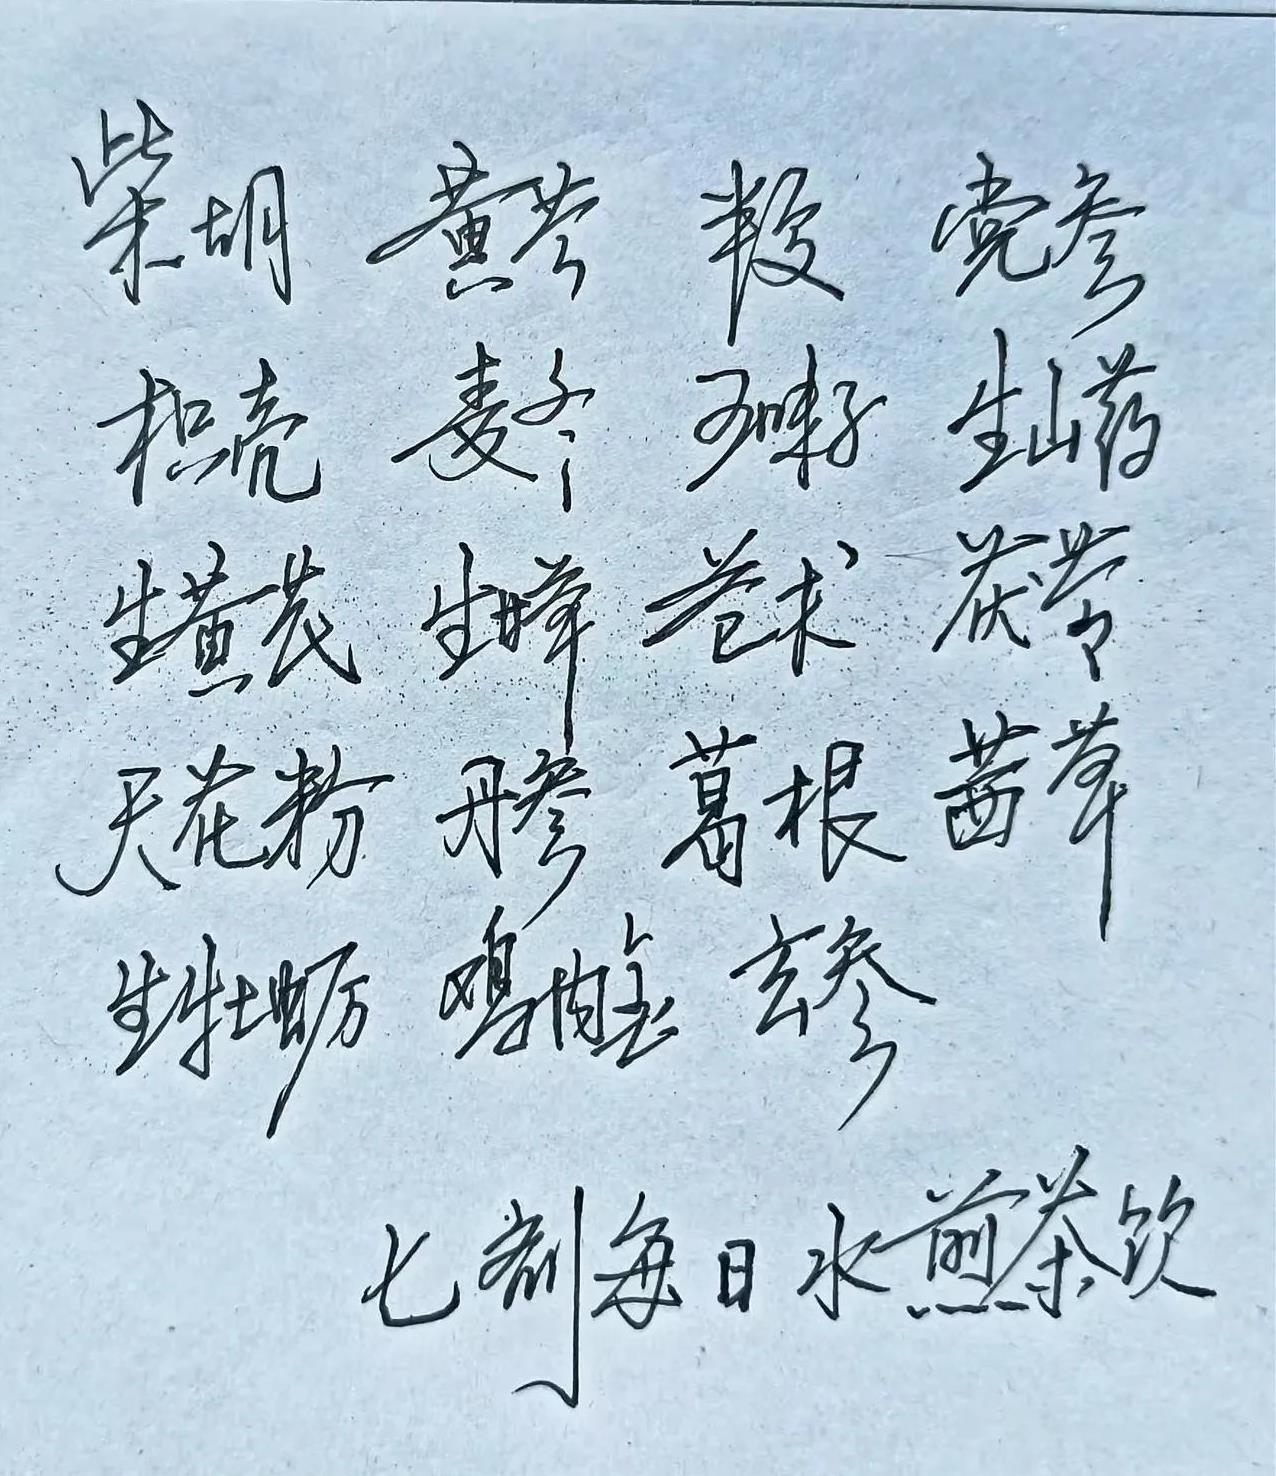 柴胡 黄芩 半夏 党参
枳壳 麦冬 五味子 生山药
生黄芪 生甘草 苍术 茯苓
天花粉 丹参 葛根 茜草
生牡蛎 鸡内金 玄参
七剂每日水煎茶饮